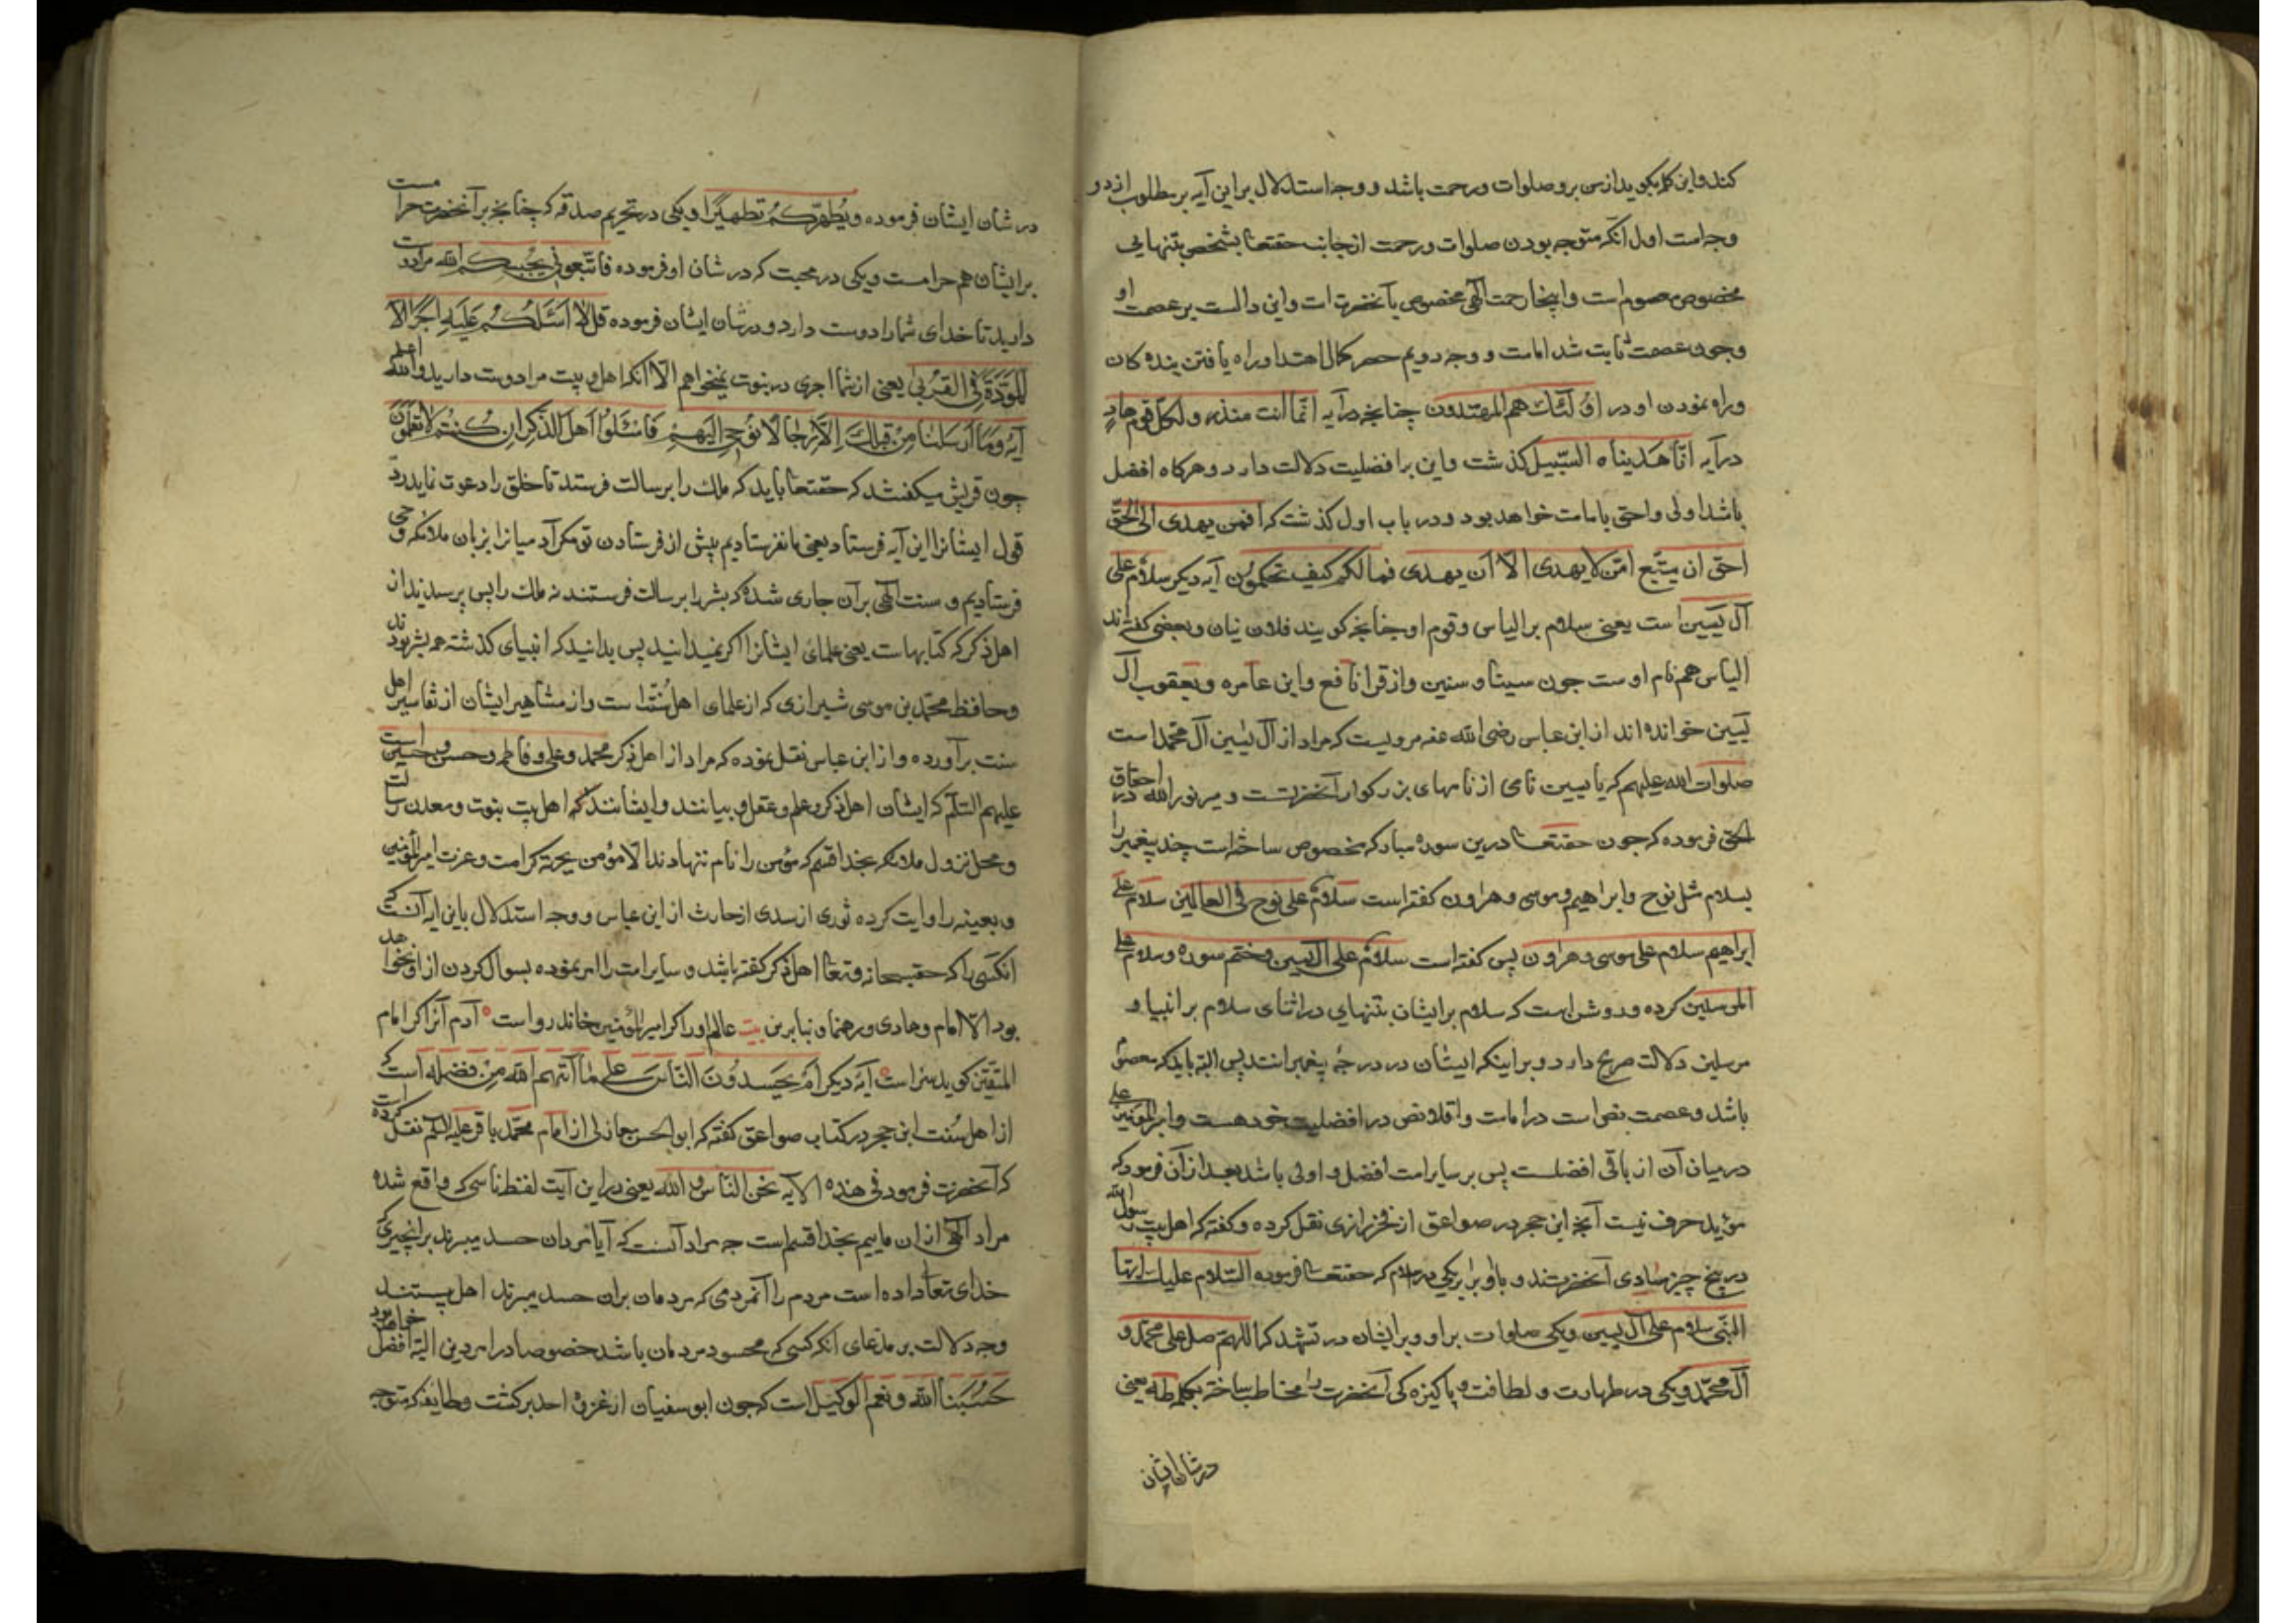 کند و این کلمه بکوید از من برو صلوات و رحمت باشد و وجه استدلال بر این آیه بر مطلوب از دو
وجه است اول آنکه متوجه بودن صلوات و رحمت از جانب حقتعا بشخص بتنهایی
مخصوص معصوم است و اینجا رحمت الهی مخصوص بآنحضرت است و این دالست بر عصمت او
و چون عصمت ثابت شد امامت و وجه دویم حصر کمال اهتدا و راه یافتن بنده کان
و راه نمودن او در اولئک هم المهتدون چنانچه در آیه انما انت منذر و لکل قوم هاد
در آیه انا هدیناه السبیل کذشت و این بر افضلیت دلالت دارد و هرکاه افضل
باشد اولی و احق بامامت خواهد بود و در باب اول کذشت که افمن یهدی الی الحق
احق ان یتبع امن لا یهدی الا ان یهدی فما لکم کیف تحکمون آیه دیکر سلام علی
آل یسین است یعنی سلام بر الیاس و قوم او چنانچه کویند فلان نیان و بعضی کفته اند
الیاس هم نام اوست چون سینا و سنین و از قرا نافع و ابن عامر و یعقوب آل
یسین خوانده اند از ابن عباس رضی الله عنه مرویست که مراد از آل یسین آل محمد است
صلوات الله علیهم که یا یسین نامی از نامهای بزرکوار آنحضرتست و میر نور الله در احقاق
الحق فرموده که چون حقتعا درین سوره مبارکه مخصوص ساخته است چند پیغمبر را
بسلام مثل نوح و ابراهیم و موسی و هرون کفته است سلام علی نوح فی العالمین سلام علی
ابراهیم سلام علی موسی و هرون پس کفته است سلام علی آل یسین و ختم سوره و سلام علی
المرسلین کرده و روشن است که سلام بر ایشان بتنهایی در اثنای سلام بر انبیا و
مرسلین دلالت صریح دارد بر اینکه ایشان در درجه پیغمبرانند پس البته باید که معصوم
باشد و عصمت نص است در امامت و اقلا نص در افضلیت خود هست و امیر المؤمنین علی
در میان آن از باقی افضلست پس بر سایر امت افضل و اولی باشد بعد از آن فرمود که
مؤید حرف نیست آنچه ابن حجر در صواعق از فخر رازی نقل کرده و کفته که اهل بیت رسول الله
در پنج چیز مساوی آنحضرتند و با او برابر یکی در سلام که حقتعا فرموده السلام علیک ایها
النبی سلام علی آل یسین و یکی صلوات بر او و بر ایشان در تشهد که اللهم صل علی محمد و
آل محمد و یکی در طهارت و لطافت و پاکیزه کی آنحضرت را مخاطب ساخته بکلمه طه یعنی
در شان ایشان
در شان ایشان فرموده و یطهرکم تطهیرا و یکی در تحریم صدقه که چنانچه بر آنحضرت حرامست
بر ایشان هم حرامست و یکی در محبت که در شان او فرموده فاتبعونی یحببکم الله مرا دوست
دارید تا خدای شما را دوست دارد و در شان ایشان فرموده قل لا اسئلکم علیه اجرا الا
المودة فی القربی یعنی از شما اجری در نبوت نمیخواهم الا آنکه اهل بیت مرا دوست دارید و الله اعلم
آیه وما ارسلنا من قبلک الا رجالا نوحی الیهم فاسئلوا اهل الذکر ان کنتم لا تعلمون
چون قریش میکفتند که حقتعا باید که ملک را برسالت فرستد تا خلق را دعوت نماید رد
قول ایشانرا این آیه فرستاد یعنی ما نفرستادیم پیش از فرستادن تو مکر آدمیانرا بزبان ملائکه وحی
فرستادیم و سنت الهی بر آن جاری شده که بشر را برسالت فرستند نه ملک را پس پرسید از
اهل ذکر که کتابهاست یعنی علمای ایشانرا اکر نمیدانید پس بدانید که انبیای کذشته همه بشر بودند
و حافظ محمد بن موسی شیرازی که از علمای اهل سنت است و از مشاهیر ایشان از تفاسیر اهل
سنت برآورده و از ابن عباس نقل نموده که مراد از اهل ذکر محمد و علی و فاطمه و حسن و حسین است
علیهم السلام که ایشان اهل ذکر و علم و عقل و بیانند و ایشانند که اهل بیت نبوت و معدن رسالت
و محل نزول ملائکه بخدا قسم که مؤمن را نام ننهادند الا مؤمن بجهة کرامت و عزت امیر المؤمنین
و بعینه روایت کرده ثوری از سدی از حارث از ابن عباس و وجه استدلال باین آیه آنست که
آنکسی را که حق سبحانه و تعا اهل ذکر کفته باشد و سایر امت را امر نموده بسوال کردن از او نخواهد
بود الا امام و هادی و رهنما و بنابرین بیت عالم او را کر امیر المؤمنین خواند رواست آدم آنرا کر امام
المتقین کوید سزاست آیه دیکر ام یحسدون الناس علی ما آتیهم الله من فضله است که
از اهل سنت ابن حجر در کتاب صواعق کفته که ابو الحسن مغازلی از امام محمد باقر علیه السلام نقل کرده است
که آنحضرت فرمود فی هذه الایه نحن الناس و الله یعنی در این آیت لفظ ناسی که واقع شده
مراد الهی از ان ماییم بخدا قسم است چه مراد آنست که آیا مردمان حسد میبرند بر آنچیزی که
خدای تعا داده است مردم را آنمردمی که مردمان بران حسد میبرند اهل بیتند
وجه دلالت بر مدعای آنکه کسی که محسود مردمان باشد خصوصا در امر دین البته افضل خواهد بود
حسبنا الله و نعم الوکیل است که چون ابو سفیان از غزوه احد برکشت و طایفه که متوجه